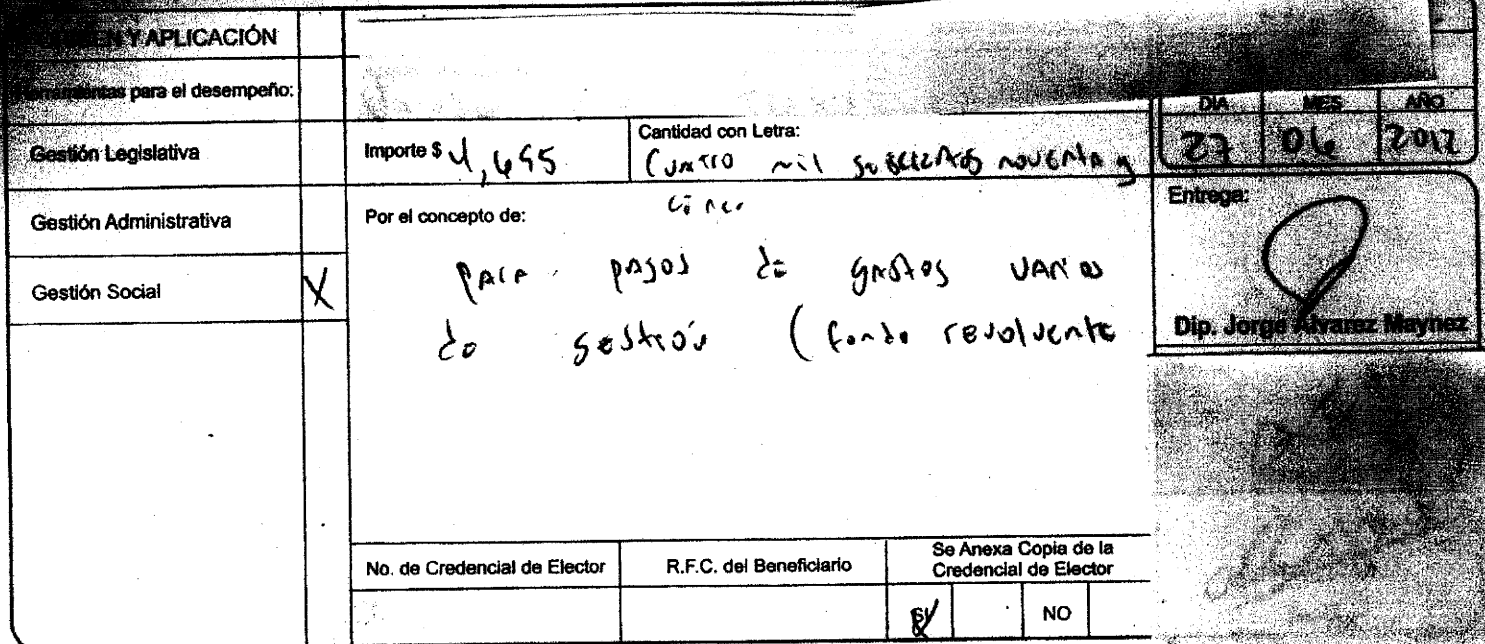 Y APLICACIÓN
para el desempeño:
Gestión Legislativa
Gestión Administrativa
Gestión Social X
Importe $ 4,695
Cantidad con Letra:
Cuatro mil seiscientos noventa y
cinco
Por el concepto de:
para pagos de gastos varios
de gestión (fondo revolvente
DIA MES AÑO
27 06 2012
Entrega:
Dip. Jorge Alvarez Maynez
No. de Credencial de Elector
R.F.C. del Beneficiario
Se Anexa Copia de la
Credencial de Elector
SI
NO